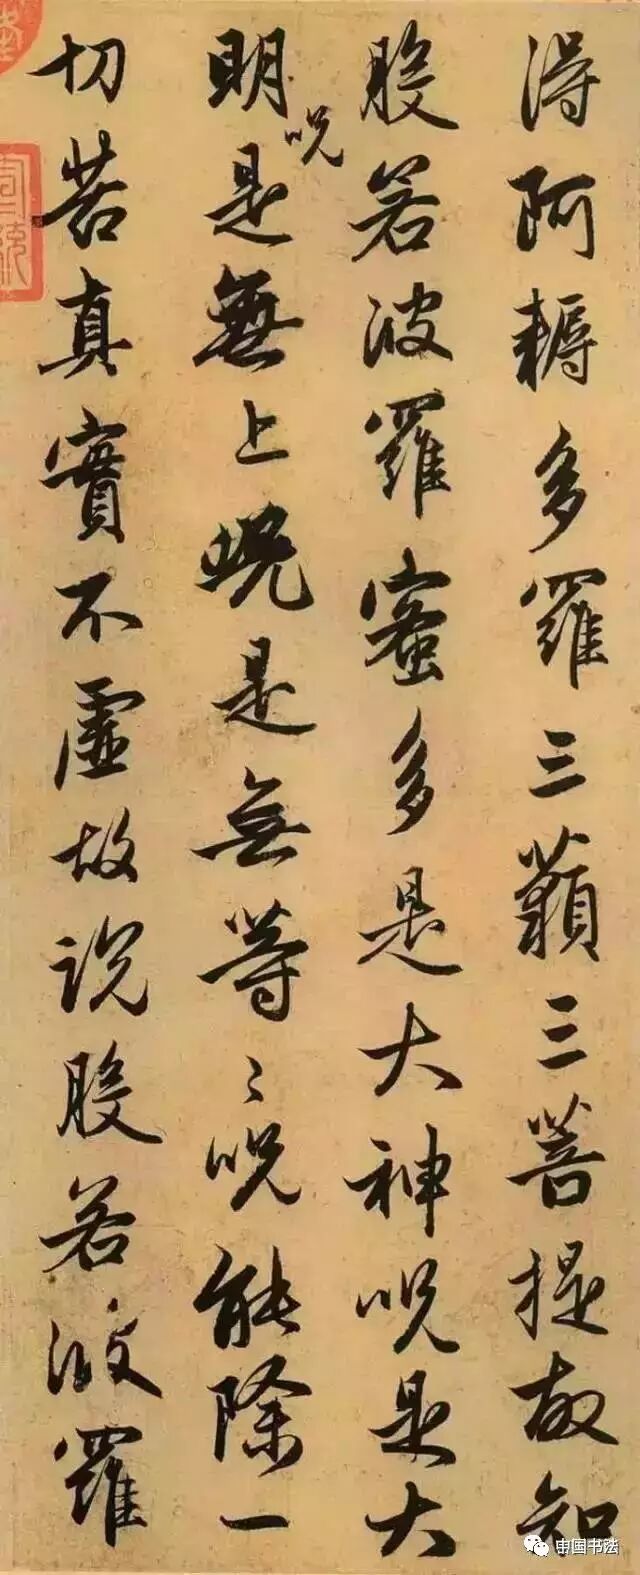 得阿耨多羅三藐三菩提故知
般若波羅蜜多是大神呪是大
明呪是無上呪是無等〻呪能除一
切苦真實不虛故說般若波羅
中国书法